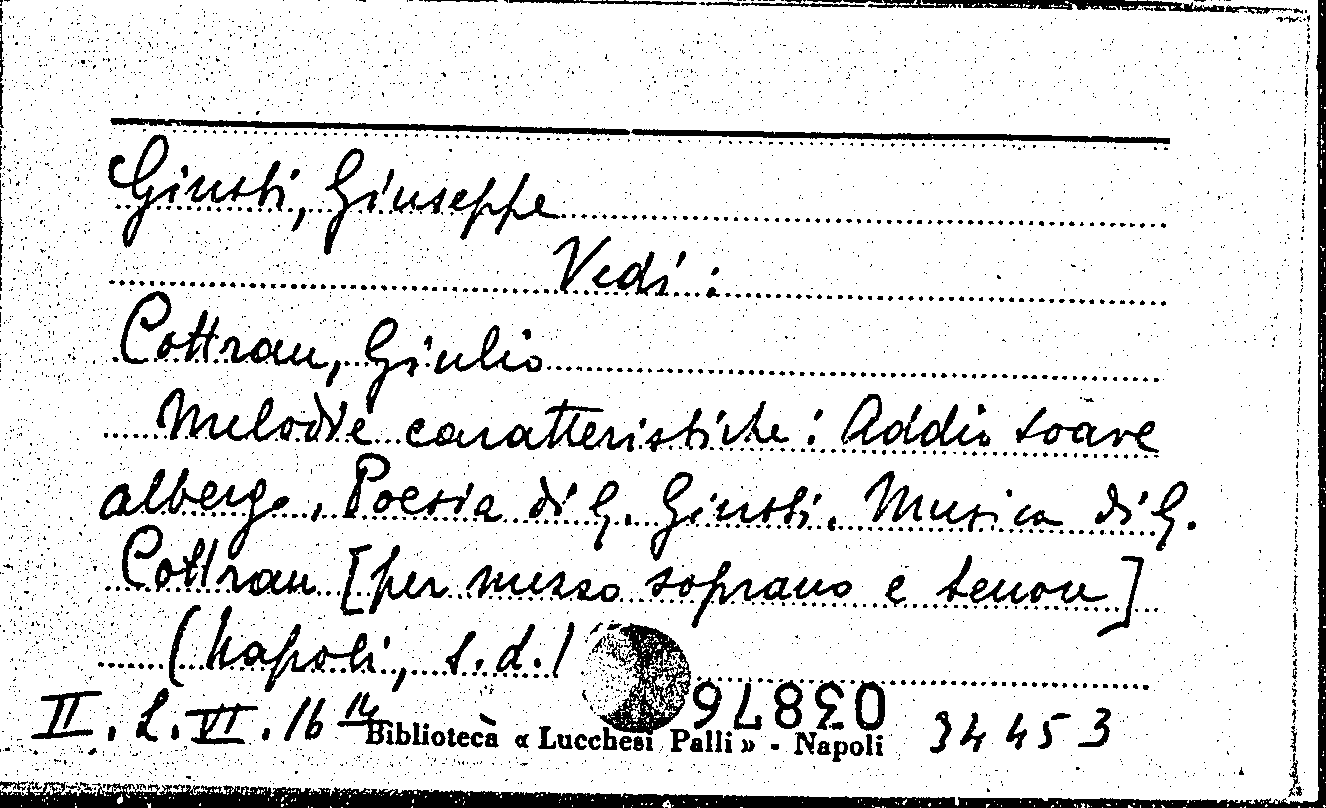 Giusti, Giuseppe
Vedi:
Cottrau, Giulio
Melodie caratteristiche: Addio soave
albergo, Poesia di G. Giusti. Musica di G.
Cottrau [per mezzo soprano e tenore]
(Napoli, s.d.)
038776
II. L. VI. 16 14 Biblioteca « Lucchesi Palli » - Napoli 34453